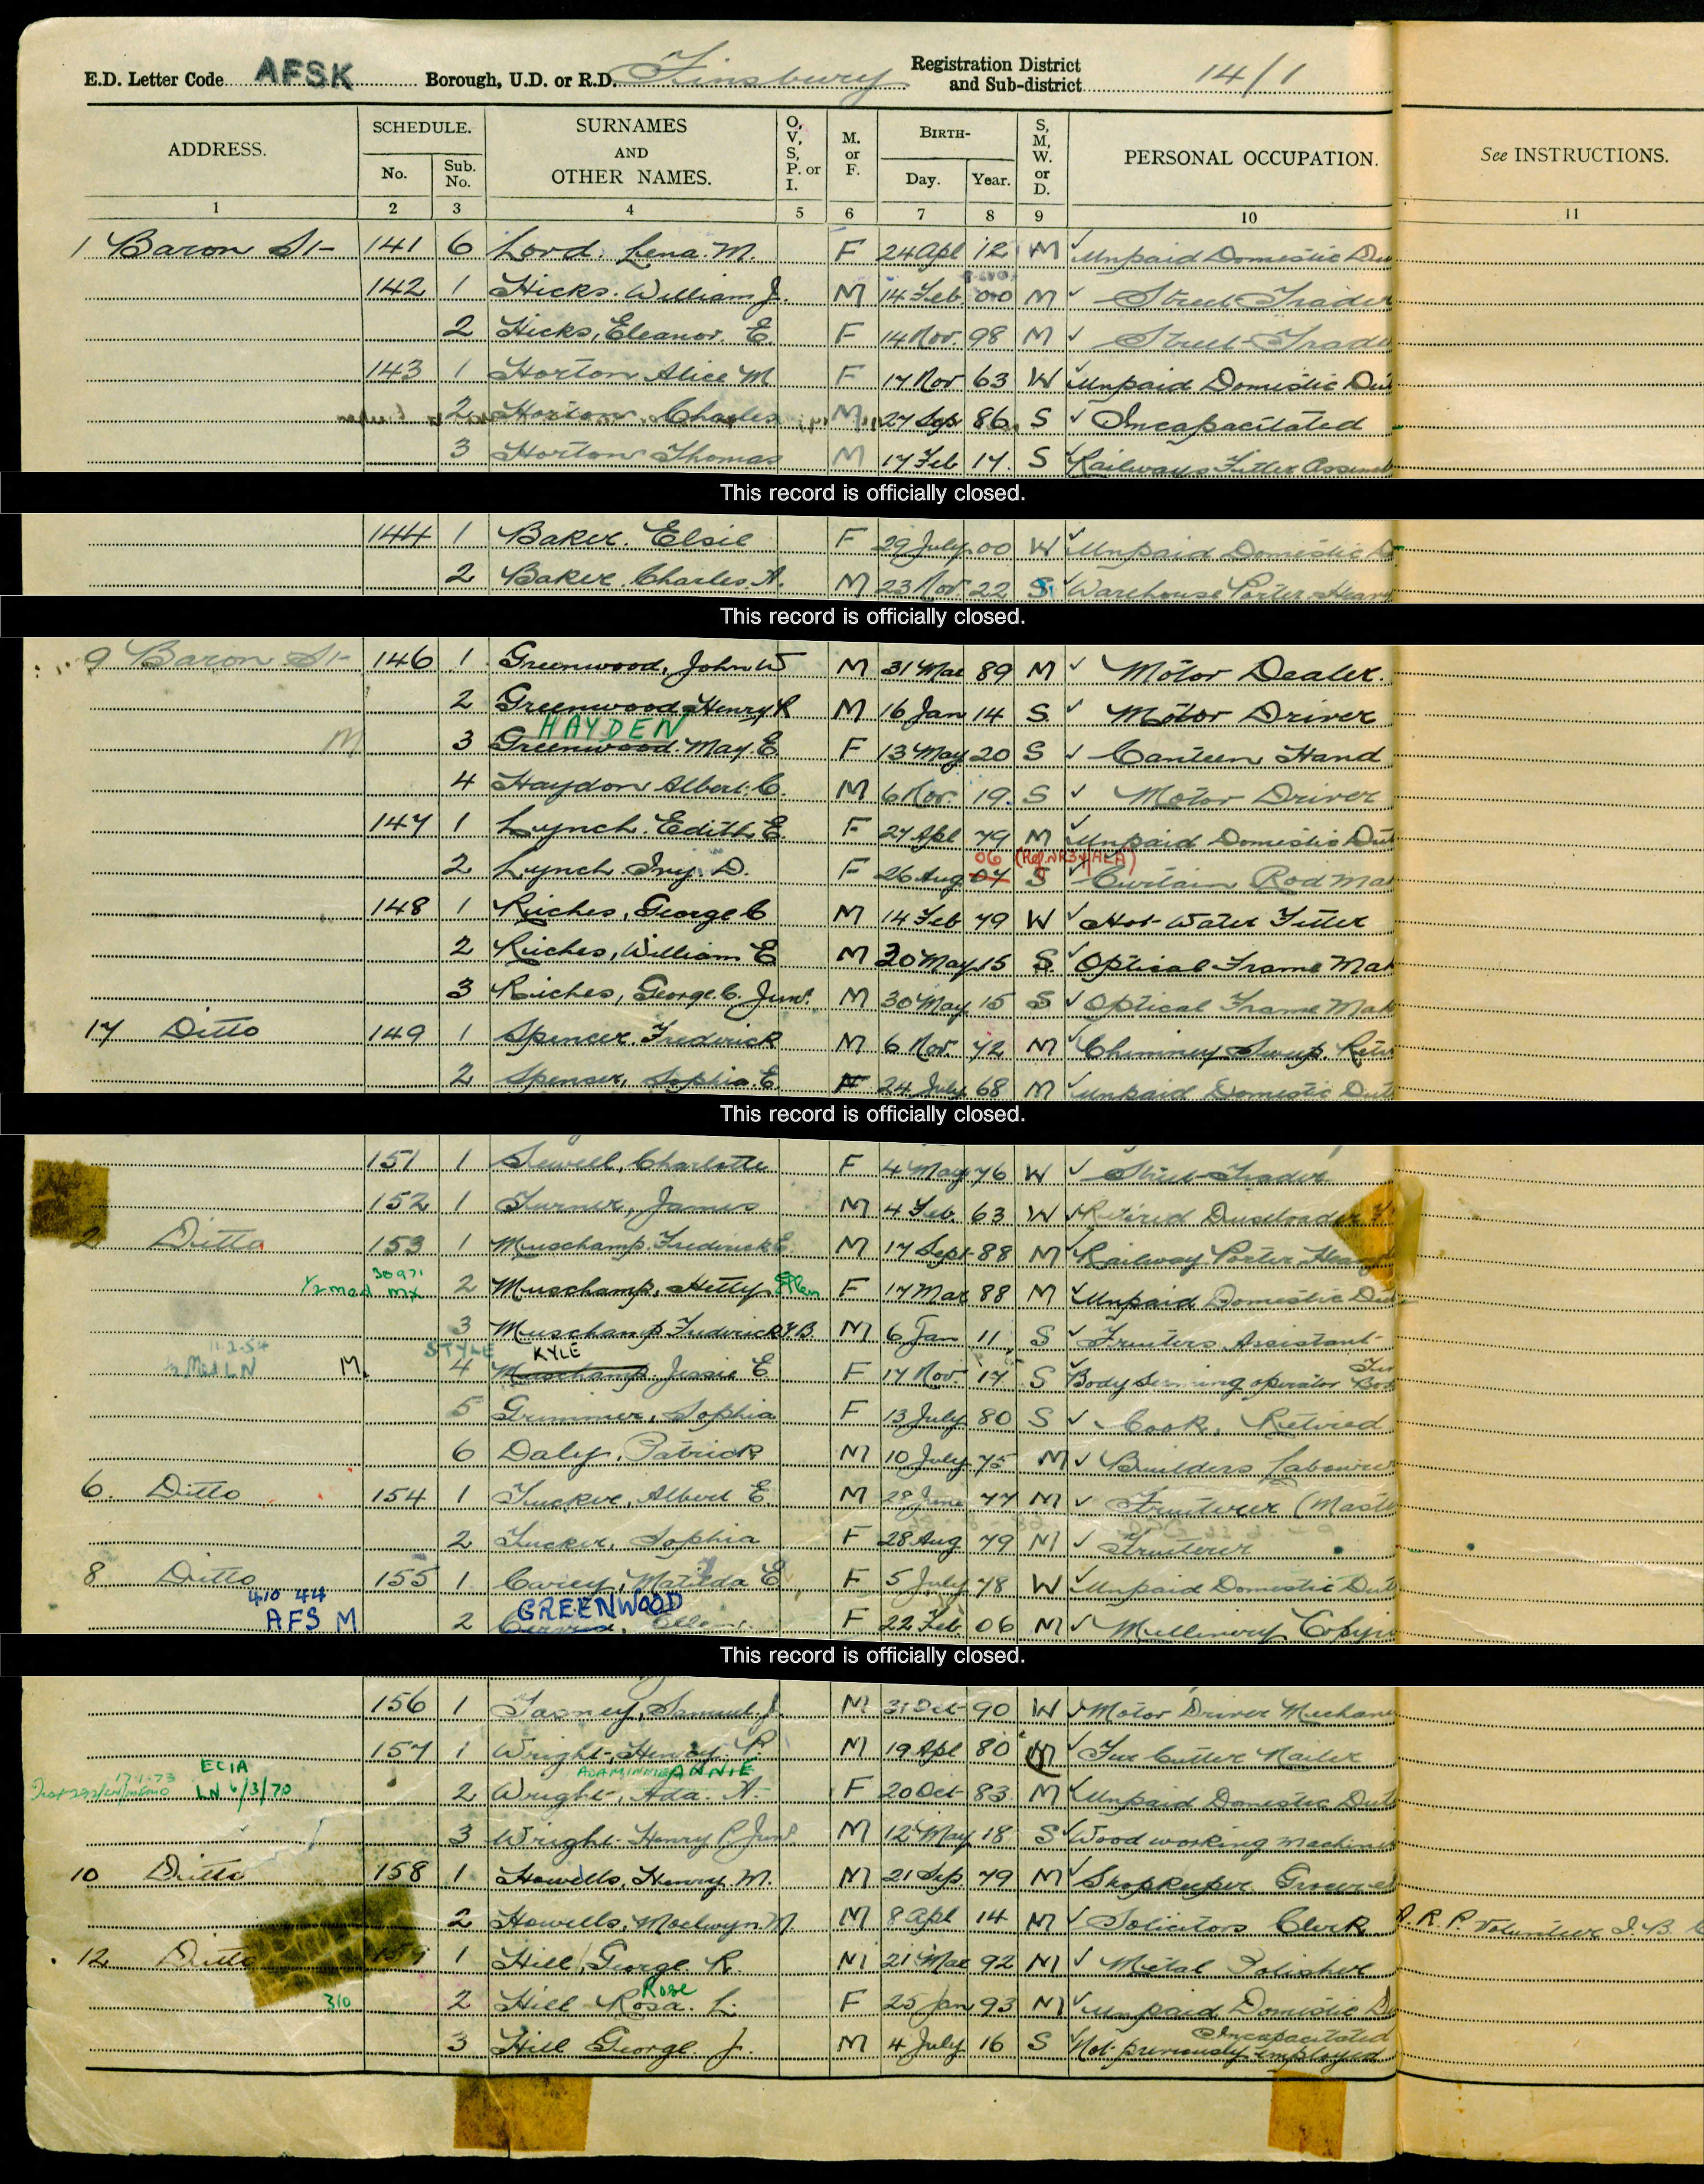 E.D. Letter Code AFSK Borough, U.D. or R.D. Finsbury Registration District and Sub-district 14/1
ADDRESS. SCHEDULE. No. Sub. No. SURNAMES AND OTHER NAMES. O, V, S, P. or I. M. or F. BIRTH- Day. Year. S, M, W. or D. PERSONAL OCCUPATION. See INSTRUCTIONS.
1 2 3 4 5 6 7 8 9 10 11
1 Baron St 141 6 Lord, Lena. M. F 24 Apl 12 M Unpaid Domestic Du
142 1 Hicks. William J. M 14 Feb 00 M Street Trader
2 Hicks, Eleanor. E. F 14 Nov. 98 M Street Trade
143 1 Horton Alice M F 17 Nov 63 W Unpaid Domestic Dut
2 Horton Charles M 27 Sep 86 S Incapacitated
3 Horton Thomas M 17 Feb 17. S Railways Fitter Assemb
This record is officially closed.
144 1 Baker. Elsie F 29 July 00 W Unpaid Domestic D
2 Baker. Charles. A. M 23 Nov 22 S. Warehouse Porter Heav
This record is officially closed.
9 Baron St 146 1 Greenwood, John W M 31 Mar 89 M Motor Dealer.
2 Greenwood Henry R M 16 Jan 14 S. Motor Driver
HAYDEN
M 3 Greenwood. May. E. F 13 May 20 S Canteen Hand
4 Haydon Albert. C. M 6 Nov. 19. S Motor Driver
147 1 Lynch. Edith. E. F 27 Apl 79 M Unpaid Domestic Dut
06
2 Lynch Ivy. D. F 26 Aug 07 S Curtain Rod Mak
148 1 Riches, George C M 14 Feb 79 W Hot Water Fitter
2 Riches, William E M 30 May 15 S. Optical Frame Mak
3 Riches, George. C. Junr. M 30 May 15 S Optical Frame Mak
17 Ditto 149 1 Spencer. Frederick M 6 Nov. 72 M Chimney Sweep. Retir
2 Spenser, Sophia. E. F 24 July 68 M Unpaid Domestic Dut
This record is officially closed.
151 1 Sewell, Charlotte F 4 May 76 W Street Trader
152 1 Turner, James M 4 Feb. 63 W Retired
2 Ditto 153 1 Muschamp. Frederick E M 17 Sept 88 M Railway Porter Heavy
30971
1/2 med mx 2 Muschamp, Hetty Ellen F 17 Mar 88 M Unpaid Domestic Dut
3 Muschamp Frederick M 6 Jan 11 S Fruiters Assistant
11.2.54 STYLE KYLE
LN M. 4 Muschamp Jessie E F 17 Nov. 17 S Body operator
5 Grimmer, Sophia F 13 July 80 S Cook, Retired
6 Daly, Patrick M 10 July 75 M Builders Labourer
6. Ditto 154 1 Tucker, Albert E M 28 June 77 M Fruiterer (Maste
2 Tucker, Sophia F 28 Aug 79 M Fruiterer
8 Ditto 155 1 Carey, Matilda E F 5 July 78 W Unpaid Domestic Dut
410 44 GREENWOOD
AFS M 2 Ellen. F 22 Feb. 06 M Millinery Copyi
This record is officially closed.
156 1 Tasney, Samuel. J. M 31 Oct 90 W Motor Driver Mechani
157 1 Wright, Henry. P. M 19 Apl 80 M Fur Cutter Nailer
17.1.73 ECIA ADA MINNIE ANNIE
LN 6/3/70 2 Wright, Ada. A. F 20 Oct 83 M Unpaid Domestic Dut
3 Wright Henry P. Junr M 12 May 18 S Wood working machini
10 Ditto 158 1 Howells, Henry. M. M 21 Sep. 79 M Shopkeeper Grocer
2 Howells, Moelwyn M M 8 Apl 14 M Solicitors Clerk A.R.P. Volunteer
12 Ditto 159 1 Hill, George. R. M 21 Mar 92 M Metal Polisher
Rose
310 2 Hill Rosa. L. F 25 Jan 93 M Unpaid Domestic Du
Incapacitated
3 Hill George J. M 4 July 16 S Not previously employed